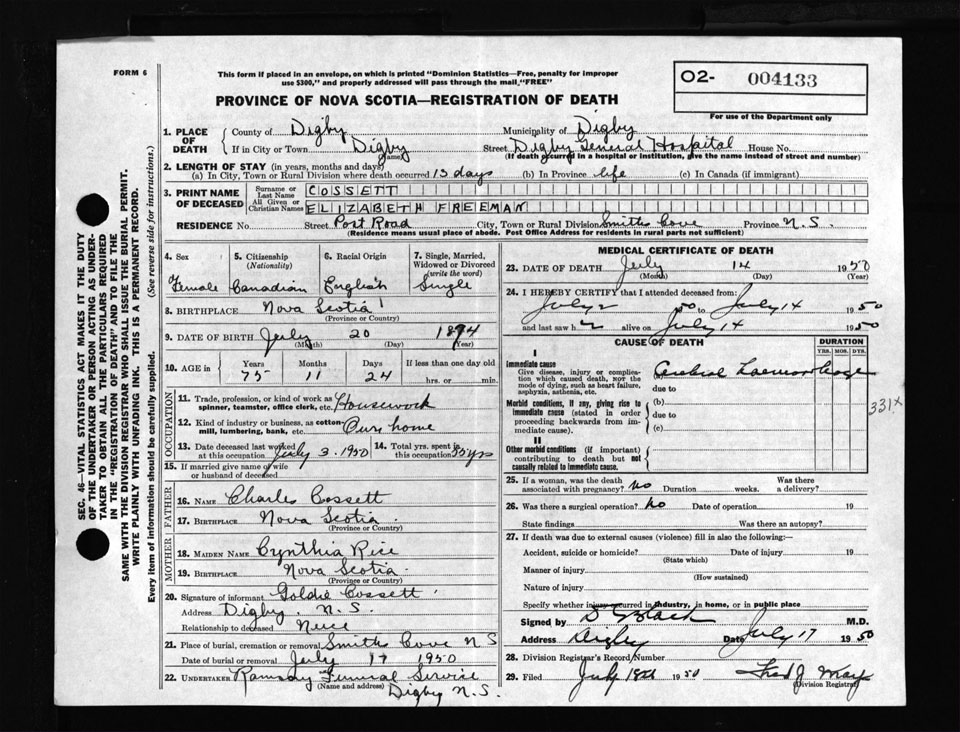 FORM 6
This form if placed in an envelope, on which is printed "Dominion Statistics—Free, penalty for improper
use $300," and properly addressed will pass through the mail, "FREE"
O2- 004133
For use of the Department only
PROVINCE OF NOVA SCOTIA—REGISTRATION OF DEATH
1. PLACE OF DEATH { County of Digby Municipality of Digby
If in City or Town Digby (Name) Street Digby General Hospital House No.
(If death occurred in a hospital or institution, give the name instead of street and number)
2. LENGTH OF STAY (in years, months and days)
(a) In City, Town or Rural Division where death occurred 13 days (b) In Province life (c) In Canada (if immigrant)
3. PRINT NAME OF DECEASED { Surname or Last Name COSSETT
All Given or Christian Names ELIZABETH FREEMAN
RESIDENCE No. Street Post Road City, Town or Rural Division Smiths Cove Province N.S.
(Residence means usual place of abode. Post Office Address for residents in rural parts not sufficient)
4. Sex 5. Citizenship (Nationality) 6. Racial Origin 7. Single, Married, Widowed or Divorced (write the word)
Female Canadian English Single
8. BIRTHPLACE Nova Scotia
(Province or Country)
9. DATE OF BIRTH July 20 1874
(Month) (Day) (Year)
10. AGE in { Years Months Days If less than one day old
75 11 24 hrs. or min.
OCCUPATION
11. Trade, profession, or kind of work as spinner, teamster, office clerk, etc. Housework
12. Kind of industry or business, as cotton-mill, lumbering, bank, etc. Own home
13. Date deceased last worked at this occupation July 3. 1950 14. Total yrs. spent in this occupation 55 yrs
15. If married give name of wife or husband of deceased
FATHER
16. NAME Charles Cossett
17. BIRTHPLACE Nova Scotia.
(Province or Country)
MOTHER
18. MAIDEN NAME Cynthia Rice
19. BIRTHPLACE Nova Scotia.
(Province or Country)
20. Signature of informant Goldie Cossett
Address Digby. N.S.
Relationship to deceased Neice
21. Place of burial, cremation or removal Smiths Cove N S
Date of burial or removal July 17 1950
22. UNDERTAKER Ramsay Funeral Service
(Name and address) Digby N.S.
MEDICAL CERTIFICATE OF DEATH
23. DATE OF DEATH July 14 1950
(Month) (Day) (Year)
24. I HEREBY CERTIFY that I attended deceased from:
July 2 50 to July 14 1950
and last saw h alive on July 14 1950
CAUSE OF DEATH DURATION
YRS. MOS. DYS.
I
Immediate cause
Give disease, injury or complication which caused death, NOT the mode of dying, such as heart failure, asphyxia, asthenia, etc.
(a) Cerebral Haemorrhage
due to
Morbid conditions, if any, giving rise to immediate cause (stated in order proceeding backwards from immediate cause).
(b)
due to
(c)
331X
II
Other morbid conditions (if important) contributing to death but not causally related to immediate cause.
25. If a woman, was the death associated with pregnancy? No Duration weeks. Was there a delivery?
26. Was there a surgical operation? No Date of operation 19
State findings Was there an autopsy?
27. If death was due to external causes (violence) fill in also the following:—
Accident, suicide or homicide? Date of injury 19
(State which)
Manner of injury
(How sustained)
Nature of injury
Specify whether injury occurred in industry, in home, or in public place
Signed by Black M.D.
Address Digby Date July 17 1950
28. Division Registrar's Record Number
29. Filed July 18th 1950 Fred J. May
(Division Registrar)
SEC. 46—VITAL STATISTICS ACT MAKES IT THE DUTY
OF THE UNDERTAKER OR PERSON ACTING AS UNDER-
TAKER TO OBTAIN ALL THE PARTICULARS REQUIRED
IN THE "REGISTRATION OF DEATH" AND TO FILE THE
SAME WITH THE DIVISION REGISTRAR WHO SHALL ISSUE THE BURIAL PERMIT.
WRITE PLAINLY WITH UNFADING INK. THIS IS A PERMANENT RECORD.
Every item of information should be carefully supplied. (See reverse side for instructions.)